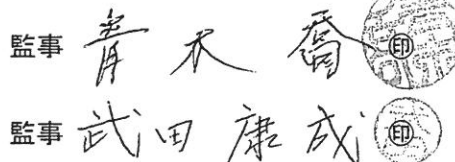 監事 青木 喬 ㊞
監事 武田 康成 ㊞